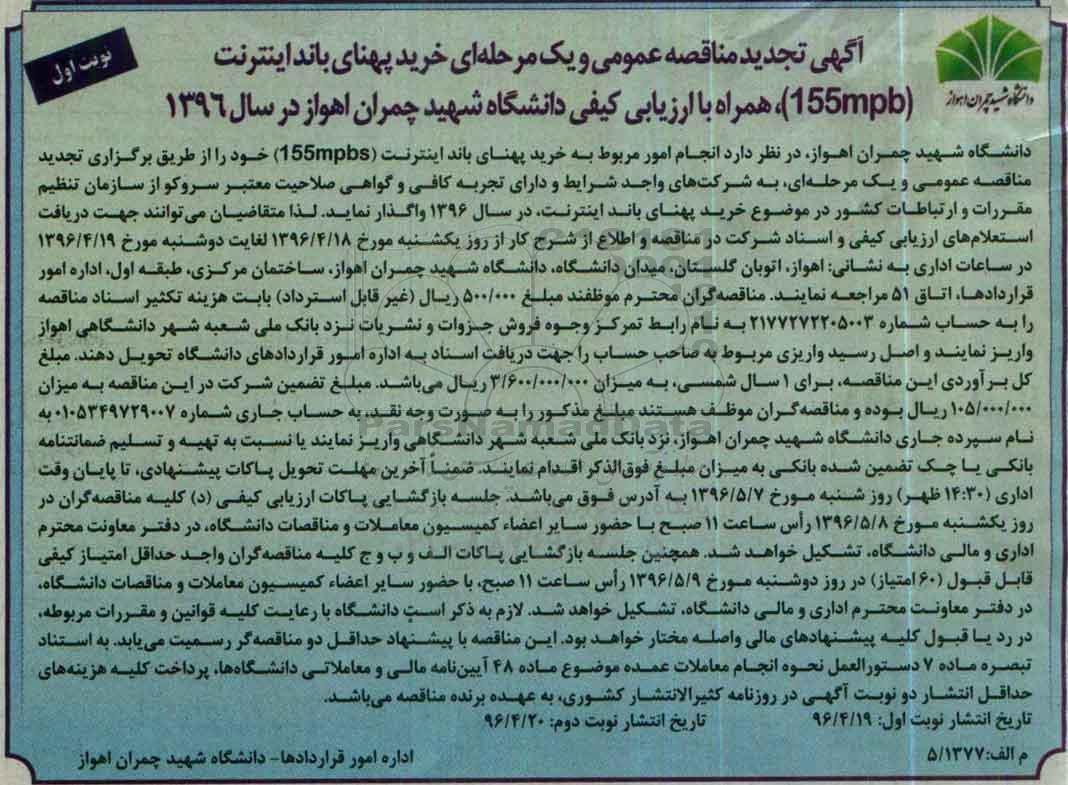 نوبت اول
دانشگاه شهید چمران اهواز
آگهی تجدید مناقصه عمومی و یک مرحله‌ای خرید پهنای باند اینترنت
(155mpb)، همراه با ارزیابی کیفی دانشگاه شهید چمران اهواز در سال ۱۳۹۶
دانشگاه شهید چمران اهواز، در نظر دارد انجام امور مربوط به خرید پهنای باند اینترنت (155mpbs) خود را از طریق برگزاری تجدید
مناقصه عمومی و یک مرحله‌ای، به شرکت‌های واجد شرایط و دارای تجربه کافی و گواهی صلاحیت معتبر سروکو از سازمان تنظیم
مقررات و ارتباطات کشور در موضوع خرید پهنای باند اینترنت، در سال ۱۳۹۶ واگذار نماید. لذا متقاضیان می‌توانند جهت دریافت
استعلام‌های ارزیابی کیفی و اسناد شرکت در مناقصه و اطلاع از شرح کار از روز یکشنبه مورخ ۱۳۹۶/۴/۱۸ لغایت دوشنبه مورخ ۱۳۹۶/۴/۱۹
در ساعات اداری به نشانی: اهواز، اتوبان گلستان، میدان دانشگاه، دانشگاه شهید چمران اهواز، ساختمان مرکزی، طبقه اول، اداره امور
قراردادها، اتاق ۵۱ مراجعه نمایند. مناقصه‌گران محترم موظفند مبلغ ۵۰۰/۰۰۰ ریال (غیر قابل استرداد) بابت هزینه تکثیر اسناد مناقصه
را به حساب شماره ۲۱۷۷۲۷۲۲۰۵۰۰۳ به نام رابط تمرکز وجوه فروش جزوات و نشریات نزد بانک ملی شعبه شهر دانشگاهی اهواز
واریز نمایند و اصل رسید واریزی مربوط به صاحب حساب را جهت دریافت اسناد به اداره امور قراردادهای دانشگاه تحویل دهند. مبلغ
کل برآوردی این مناقصه، برای ۱ سال شمسی، به میزان ۳/۶۰۰/۰۰۰/۰۰۰ ریال می‌باشد. مبلغ تضمین شرکت در این مناقصه به میزان
۱۰۵/۰۰۰/۰۰۰ ریال بوده و مناقصه‌گران موظف هستند مبلغ مذکور را به صورت وجه نقد، به حساب جاری شماره ۰۱۰۵۳۴۹۷۲۹۰۰۷ به
نام سپرده جاری دانشگاه شهید چمران اهواز، نزد بانک ملی شعبه شهر دانشگاهی واریز نمایند یا نسبت به تهیه و تسلیم ضمانتنامه
بانکی یا چک تضمین شده بانکی به میزان مبلغ فوق‌الذکر اقدام نمایند. ضمناً آخرین مهلت تحویل پاکات پیشنهادی، تا پایان وقت
اداری (۱۴:۳۰ ظهر) روز شنبه مورخ ۱۳۹۶/۵/۷ به آدرس فوق می‌باشد. جلسه بازگشایی پاکات ارزیابی کیفی (د) کلیه مناقصه‌گران در
روز یکشنبه مورخ ۱۳۹۶/۵/۸ رأس ساعت ۱۱ صبح با حضور سایر اعضاء کمیسیون معاملات و مناقصات دانشگاه، در دفتر معاونت محترم
اداری و مالی دانشگاه، تشکیل خواهد شد. همچنین جلسه بازگشایی پاکات الف و ب و ج کلیه مناقصه‌گران واجد حداقل امتیاز کیفی
قابل قبول (۶۰ امتیاز) در روز دوشنبه مورخ ۱۳۹۶/۵/۹ رأس ساعت ۱۱ صبح، با حضور سایر اعضاء کمیسیون معاملات و مناقصات دانشگاه،
در دفتر معاونت محترم اداری و مالی دانشگاه، تشکیل خواهد شد. لازم به ذکر است دانشگاه با رعایت کلیه قوانین و مقررات مربوطه،
در رد یا قبول کلیه پیشنهادهای مالی واصله مختار خواهد بود. این مناقصه با پیشنهاد حداقل دو مناقصه‌گر رسمیت می‌یابد. به استناد
تبصره ماده ۷ دستورالعمل نحوه انجام معاملات عمده موضوع ماده ۴۸ آیین‌نامه مالی و معاملاتی دانشگاه‌ها، پرداخت کلیه هزینه‌های
حداقل انتشار دو نوبت آگهی در روزنامه کثیرالانتشار کشوری، به عهده برنده مناقصه می‌باشد.
تاریخ انتشار نوبت اول: ۹۶/۴/۱۹ تاریخ انتشار نوبت دوم: ۹۶/۴/۲۰
م الف: ۵/۱۳۷۷ اداره امور قراردادها- دانشگاه شهید چمران اهواز
ParsNamadData